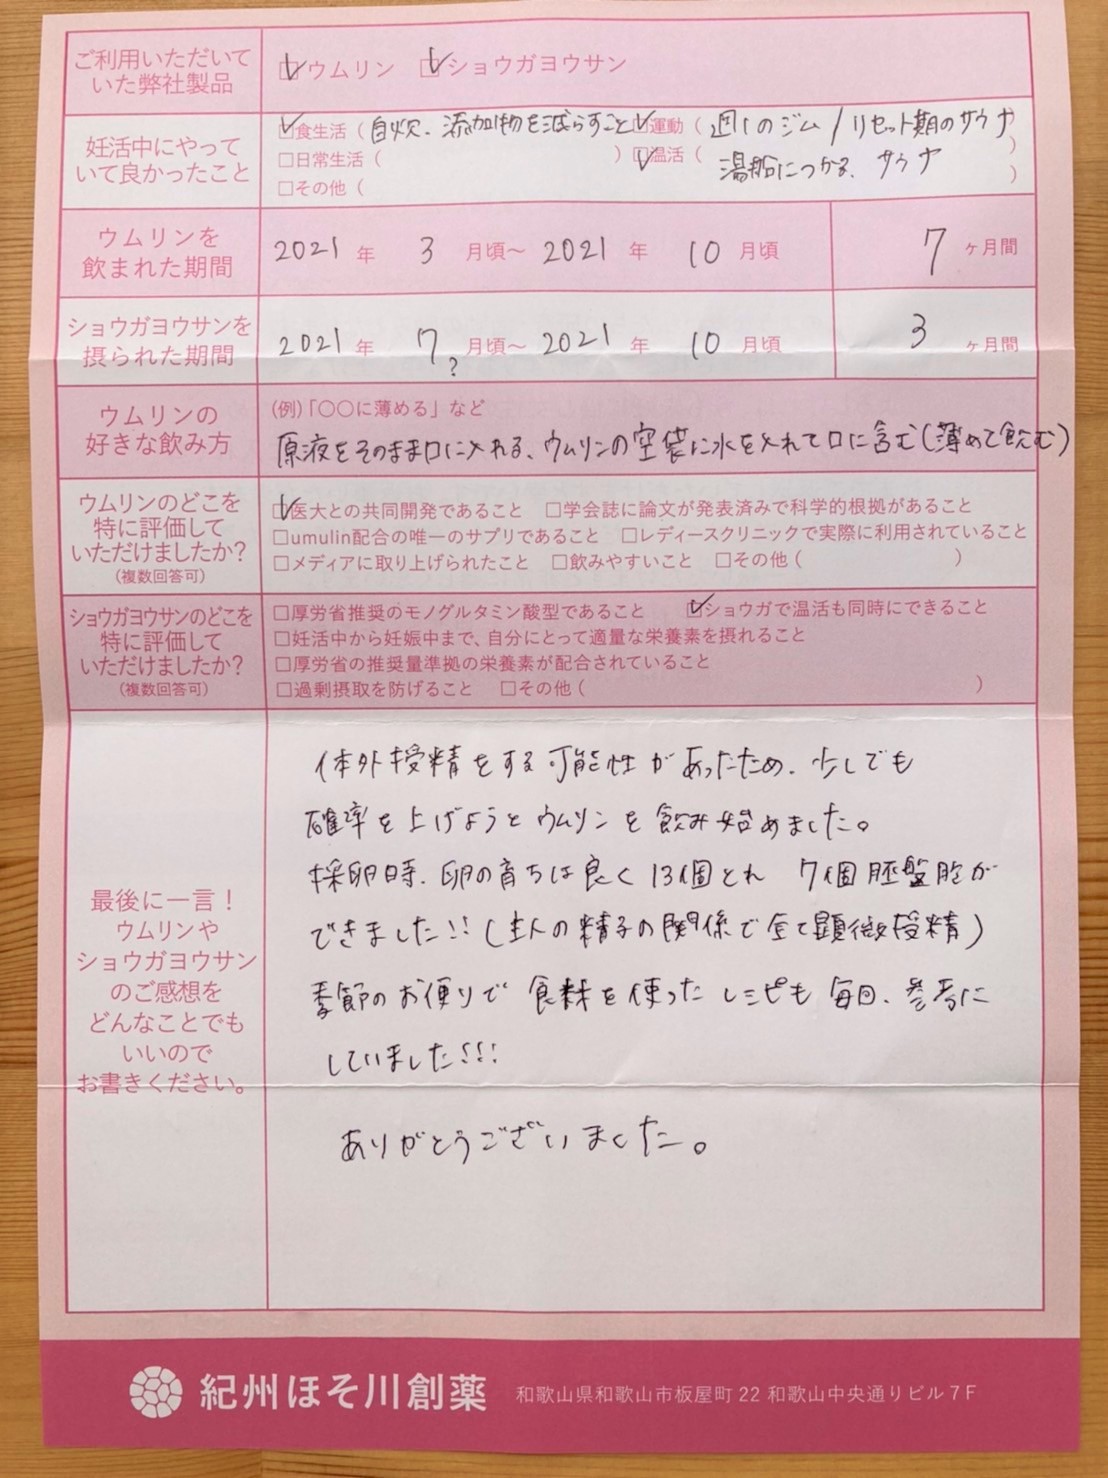 ご利用いただいて
いた弊社製品
☑ウムリン ☑ショウガヨウサン
妊活中にやって
いて良かったこと
☑食生活(自炊、添加物を減らすこと ☑運動(週1のジム/リセット期のサウナ)
□日常生活( ) ☑温活(湯船につかる、サウナ)
□その他( )
ウムリンを
飲まれた期間
2021年 3月頃〜2021年 10月頃 7ヶ月間
ショウガヨウサンを
摂られた期間
2021年 7?月頃〜2021年 10月頃 3ヶ月間
ウムリンの
好きな飲み方
(例)「○○に薄める」など
原液をそのまま口に入れる、ウムリンの空袋に水を入れて口に含む(薄めて飲む)
ウムリンのどこを
特に評価して
いただけましたか?
(複数回答可)
☑医大との共同開発であること □学会誌に論文が発表済みで科学的根拠があること
□umulin配合の唯一のサプリであること □レディースクリニックで実際に利用されていること
□メディアに取り上げられたこと □飲みやすいこと □その他( )
ショウガヨウサンのどこを
特に評価して
いただけましたか?
(複数回答可)
□厚労省推奨のモノグルタミン酸型であること ☑ショウガで温活も同時にできること
□妊活中から妊娠中まで、自分にとって適量な栄養素を摂れること
□厚労省の推奨量準拠の栄養素が配合されていること
□過剰摂取を防げること □その他( )
最後に一言!
ウムリンや
ショウガヨウサン
のご感想を
どんなことでも
いいので
お書きください。
体外授精をする可能性があったため、少しでも
確率を上げようとウムリンを飲み始めました。
採卵時、卵の育ちは良く13個とれ 7個胚盤胞が
できました!!(主人の精子の関係で全て顕微授精)
季節のお便りで食材を使ったレシピも毎回、参考に
していました!!!
ありがとうございました。
紀州ほそ川創薬 和歌山県和歌山市板屋町22 和歌山中央通りビル7F